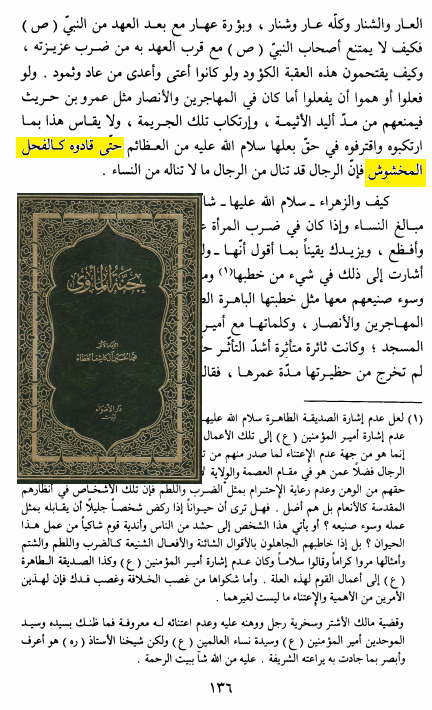 العار والشنار وكلّه عار وشنار ، وبؤرة عهار مع بعد العهد من النبيّ (ص)
فكيف لا يمتنع أصحاب النبيّ (ص) مع قرب العهد به من ضرب عزيزته ،
وكيف يقتحمون هذه العقبة الكؤود ولو كانوا أعتى وأعدى من عاد وثمود . ولو
فعلوا أو هموا أن يفعلوا أما كان في المهاجرين والأنصار مثل عمرو بن حريث
فيمنعهم من مدّ أليد الأثيمة ، وارتكاب تلك الجريمة ، ولا يقاس هذا بما
ارتكبوه واقترفوه في حقّ بعلها سلام الله عليه من العظائم حتّى قادوه كالفحل
المخشوش فإنّ الرجال قد تنال من الرجال ما لا تناله من النساء .
كيف والزهراء ـ سلام الله عليها ـ شا
مبالغ النساء وإذا كان في ضرب المرأة ع
وأفظع ، ويزيدك يقيناً بما أقول أنّها ـ ول
أشارت إلى ذلك في شيء من خطبها(١) وم
وسوء صنيعهم معها مثل خطبتها الباهرة الط
المهاجرين والأنصار ، وكلماتها مع أمير
المسجد ؛ وكانت ثائرة متأثرة أشدّ التأثّر ح
لم تخرج من حظيرتها مدّة عمرها ، فقال
جنة المأوى
محمد الحسين آل كاشف الغطاء
دار الأضواء
بيروت
(١) لعل عدم إشارة الصديقة الطاهرة سلام الله عليه
عدم إشارة أمير المؤمنين (ع) إلى تلك الأعمال
إنما هو من جهة عدم الإعتناء لما صدر منهم من ت
الرجال فضلاً عمن هو في مقام العصمة والولاية ل
حقهم من الوهن وعدم رعاية الإحترام بمثل الضرب واللطم فإن تلك الأشخاص في أنظارهم
المقدسة كالأنعام بل هم أضل . فهل ترى أن حيواناً إذا ركض شخصاً جليلاً أن يقابله بمثل
عمله وسوء صنيعه ؟ أو يأتي هذا الشخص إلى حشد من الناس وأندية قوم شاكياً من عمل هذا
الحيوان ؟ بل إذا خاطبهم الجاهلون بالأقوال الشائنة والأفعال الشنيعة كالضرب واللطم والشتم
وأمثالها مروا كراماً وقالوا سلاماً وكان عدم إشارة أمير المؤمنين (ع) وكذا الصديقة الطاهرة
(ع) إلى أعمال القوم لهذه العلة . وأما شكواها من غصب الخلافة وغصب فدك فإن لهذين
الأمرين من الأهمية والإعتناء ما ليست لغيرهما .
وقضية مالك الأشتر وسخرية رجل ووهنه عليه وعدم اعتنائه له معروفة فما ظنك بسيده وسيد
الموحدين أمير المؤمنين (ع) وسيدة نساء العالمين (ع) ولكن شيخنا الأستاذ (ره) هو أعرف
وأبصر بما جادت به يراعته الشريفة . عليه من الله شآبيب الرحمة .
١٣٦